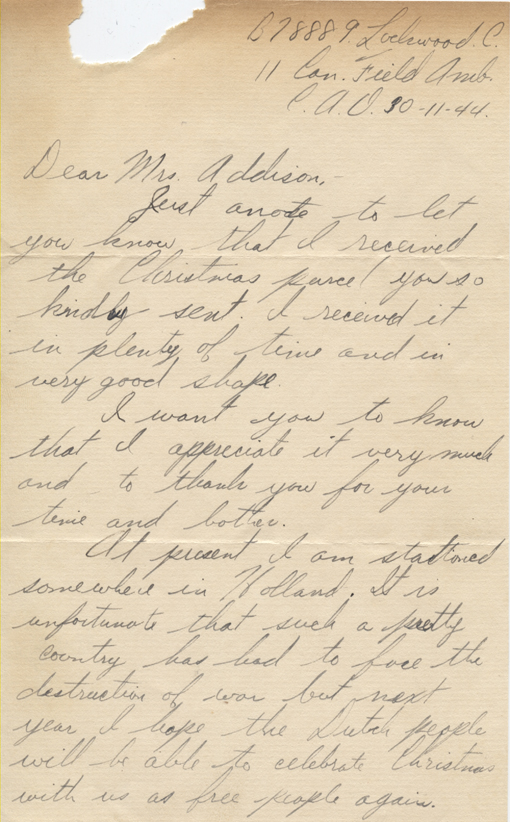 B78889. Lockwood. C.
11 Can. Field Amb.
C. A. O. 30-11-44.
Dear Mrs. Addison,-
Just a note to let
you know that I received
the Christmas parcel you so
kindly sent. I received it
in plenty of time and in
very good shape.
I want you to know
that I appreciate it very much
and to thank you for your
time and bother.
At present I am stationed
somewhere in Holland. It is
unfortunate that such a pretty
country has had to face the
destruction of war but next
year I hope the Dutch people
will be able to celebrate Christmas
with us as free people again.